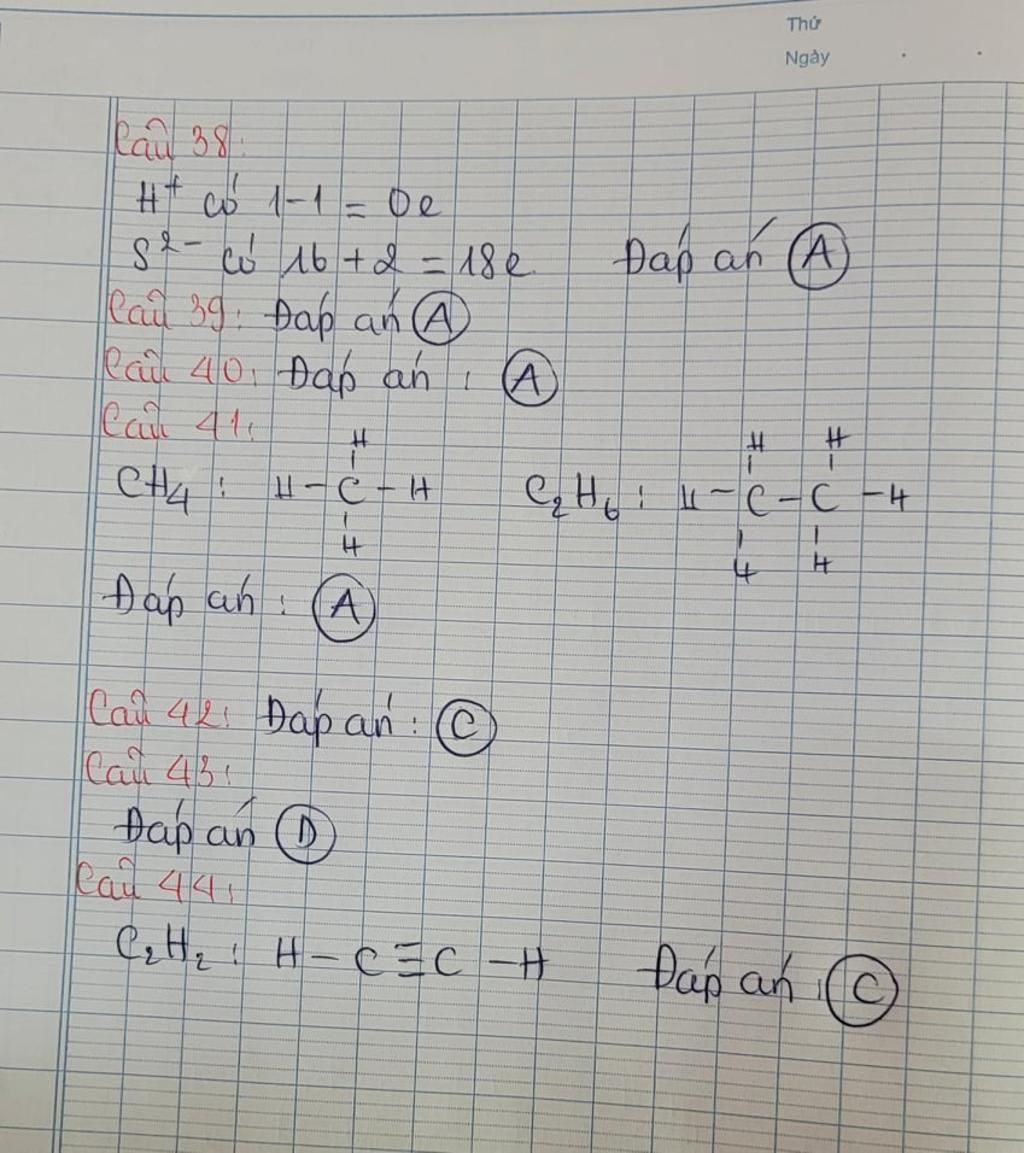 Thứ
Ngày
Câu 38:
H⁺ có 1-1 = 0e
S²⁻ có 16+2 = 18e Đáp án A
Câu 39: Đáp án A
Câu 40: Đáp án : A
Câu 41:
H H H
CH4 : H-C-H C₂H₆ : H-C-C-H
H H H
Đáp án : A
Câu 42: Đáp án : C
Câu 43:
Đáp án D
Câu 44:
C₂H₂ : H-C≡C-H Đáp án : C